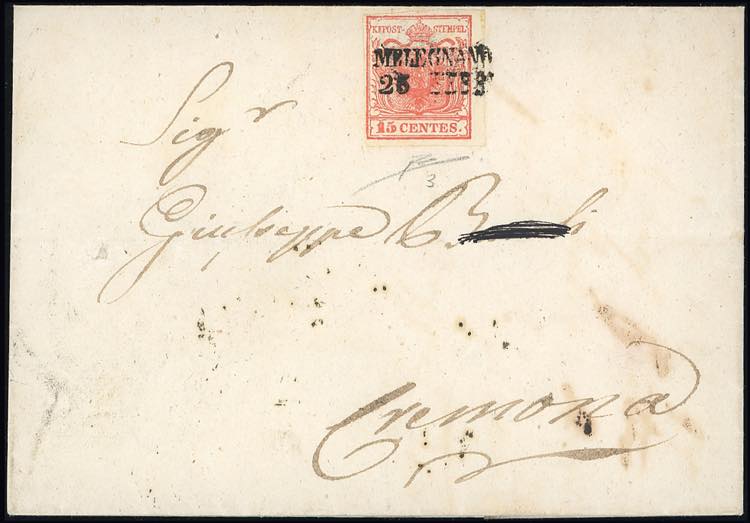 K.K.POST-STEMPEL
MELEGNANO
25 FEBB
15 CENTES.
3
Sigr
Giuseppe
Cremona